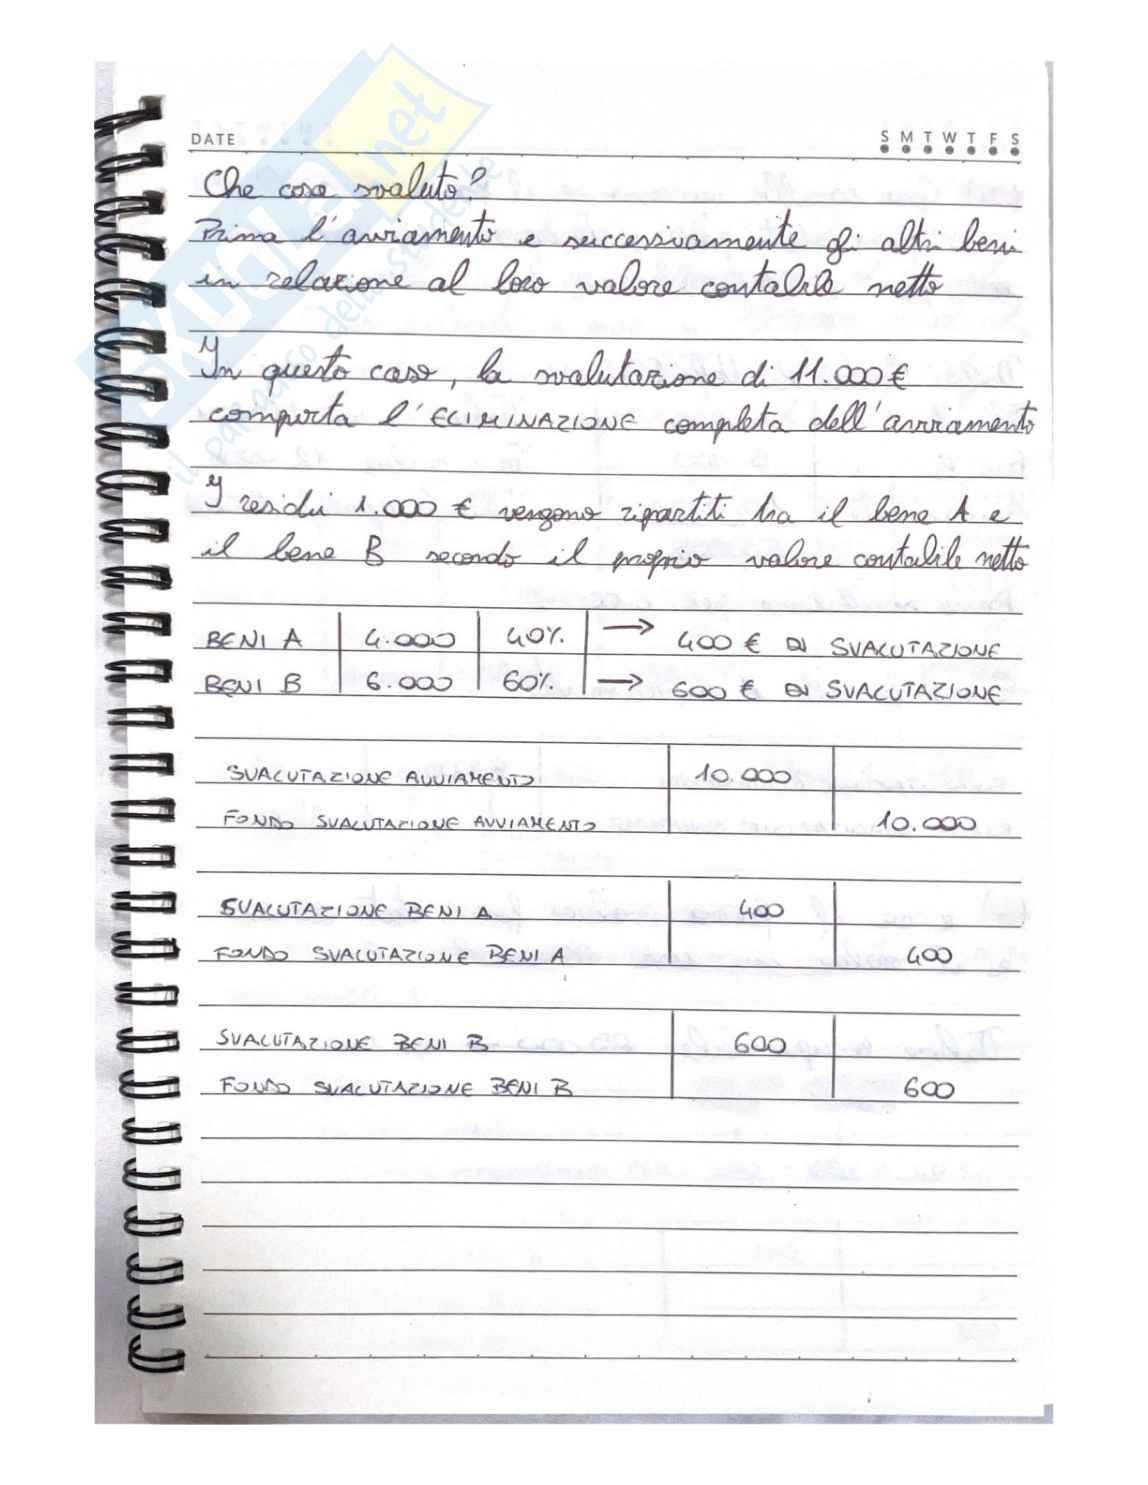 DATE
S M T W T F S
Che cosa svaluto?
Prima l'avviamento e successivamente gli altri beni
in relazione al loro valore contabile netto
In questo caso, la svalutazione di 11.000 €
comporta l'ELIMINAZIONE completa dell'avviamento
I residui 1.000 € vengono ripartiti tra il bene A e
il bene B secondo il proprio valore contabile netto
BENI A 4.000 40% → 400 € DI SVALUTAZIONE
BENI B 6.000 60% → 600 € DI SVALUTAZIONE
SVALUTAZIONE AVVIAMENTO 10.000
FONDO SVALUTAZIONE AVVIAMENTO 10.000
SVALUTAZIONE BENI A 400
FONDO SVALUTAZIONE BENI A 400
SVALUTAZIONE BENI B 600
FONDO SVALUTAZIONE BENI B 600
SKUOLA.net